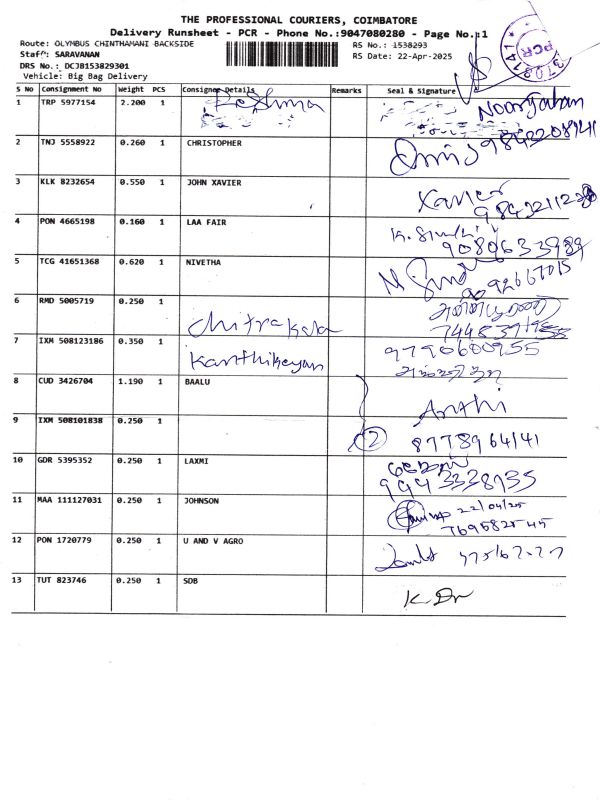 THE PROFESSIONAL COURIERS, COIMBATORE
Delivery Runsheet - PCR - Phone No.:9047080280 - Page No.:1
Route: OLYMBUS CHINTHAMANI BACKSIDE
RS No.: 1538293
Staff: SARAVANAN
RS Date: 22-Apr-2025
DRS No.: DCJ8153829301
Vehicle: Big Bag Delivery
PCR
S No Consignment No Weight PCS Consignee Details Remarks Seal & Signature
1 TRP 5977154 2.200 1 Reshma Noorjahan
9842208941
2 TNJ 5558922 0.260 1 CHRISTOPHER
3 KLK 8232654 0.550 1 JOHN XAVIER Xavier
4 PON 4665198 0.160 1 LAA FAIR
9080633989
5 TCG 41651368 0.620 1 NIVETHA
6 RMD 5005719 0.250 1 Chitrakala
7 IXM 508123186 0.350 1 Karthikeyan 9790600955
8 CUD 3426704 1.190 1 BAALU Anthi
9 IXM 508101838 0.250 1 2 8778964141
10 GDR 5395352 0.250 1 LAXMI
9943338935
11 MAA 111127031 0.250 1 JOHNSON 22/04/25
7695825445
12 PON 1720779 0.250 1 U AND V AGRO
13 TUT 823746 0.250 1 SDB